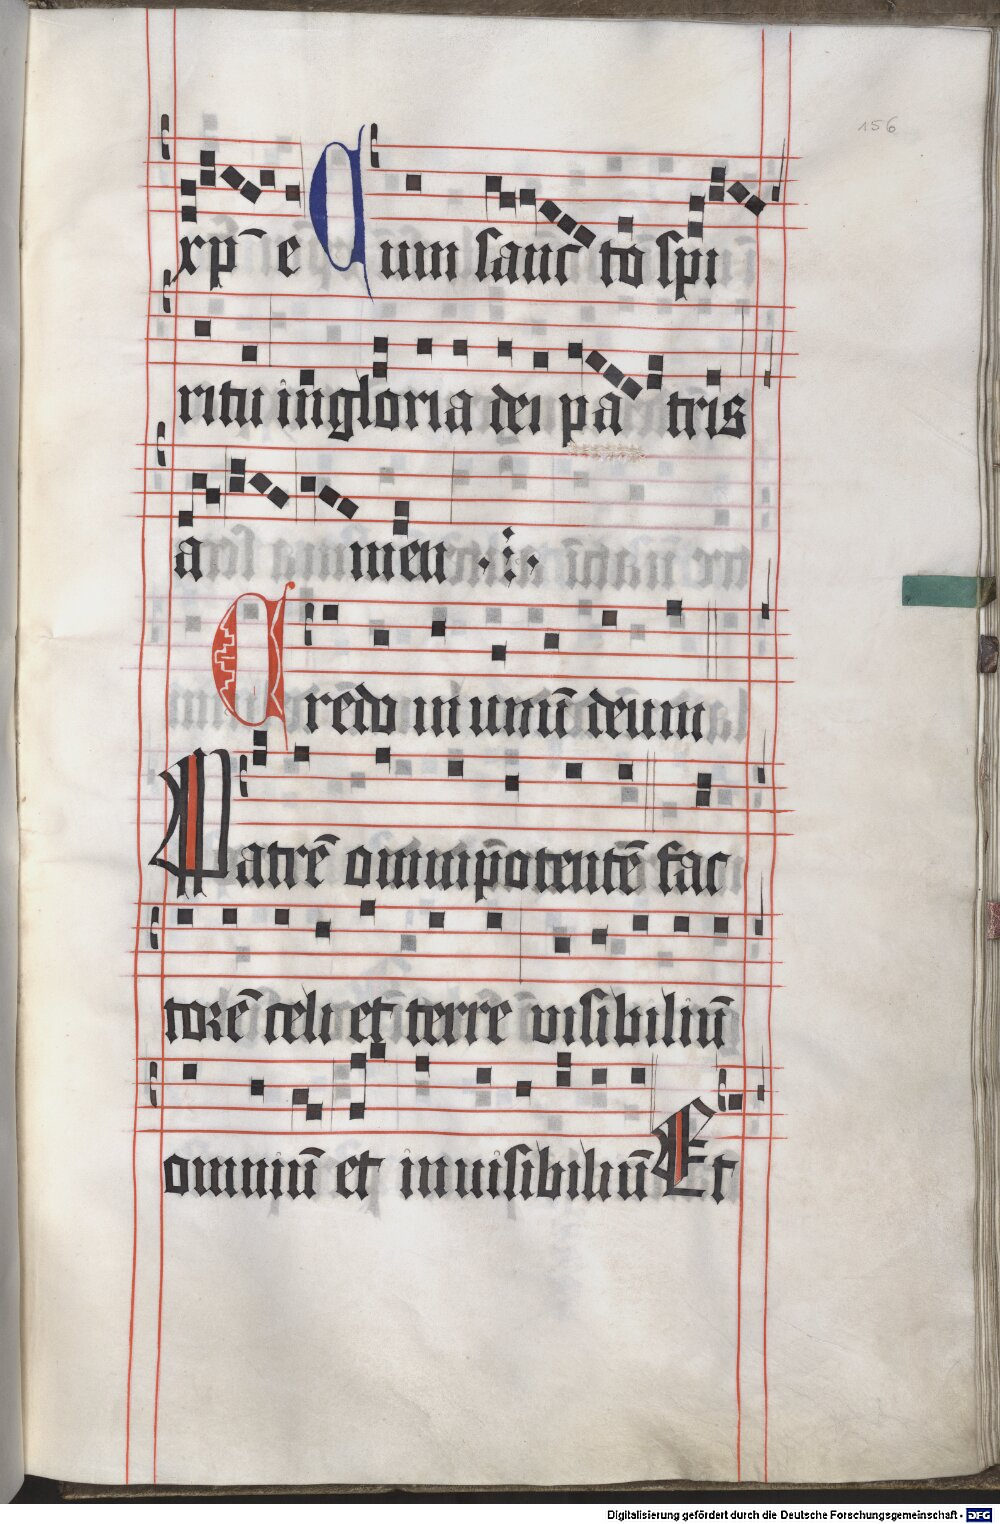 156
xp̄e Cum sancto spi
ritu in gloria dei patris
amen
Credo in unū deum
Patrē omnip̄otentē fac
torē celi et terre visibiliū
omniū et inuisibiliū Et
Digitalisierung gefördert durch die Deutsche Forschungsgemeinschaft - DFG